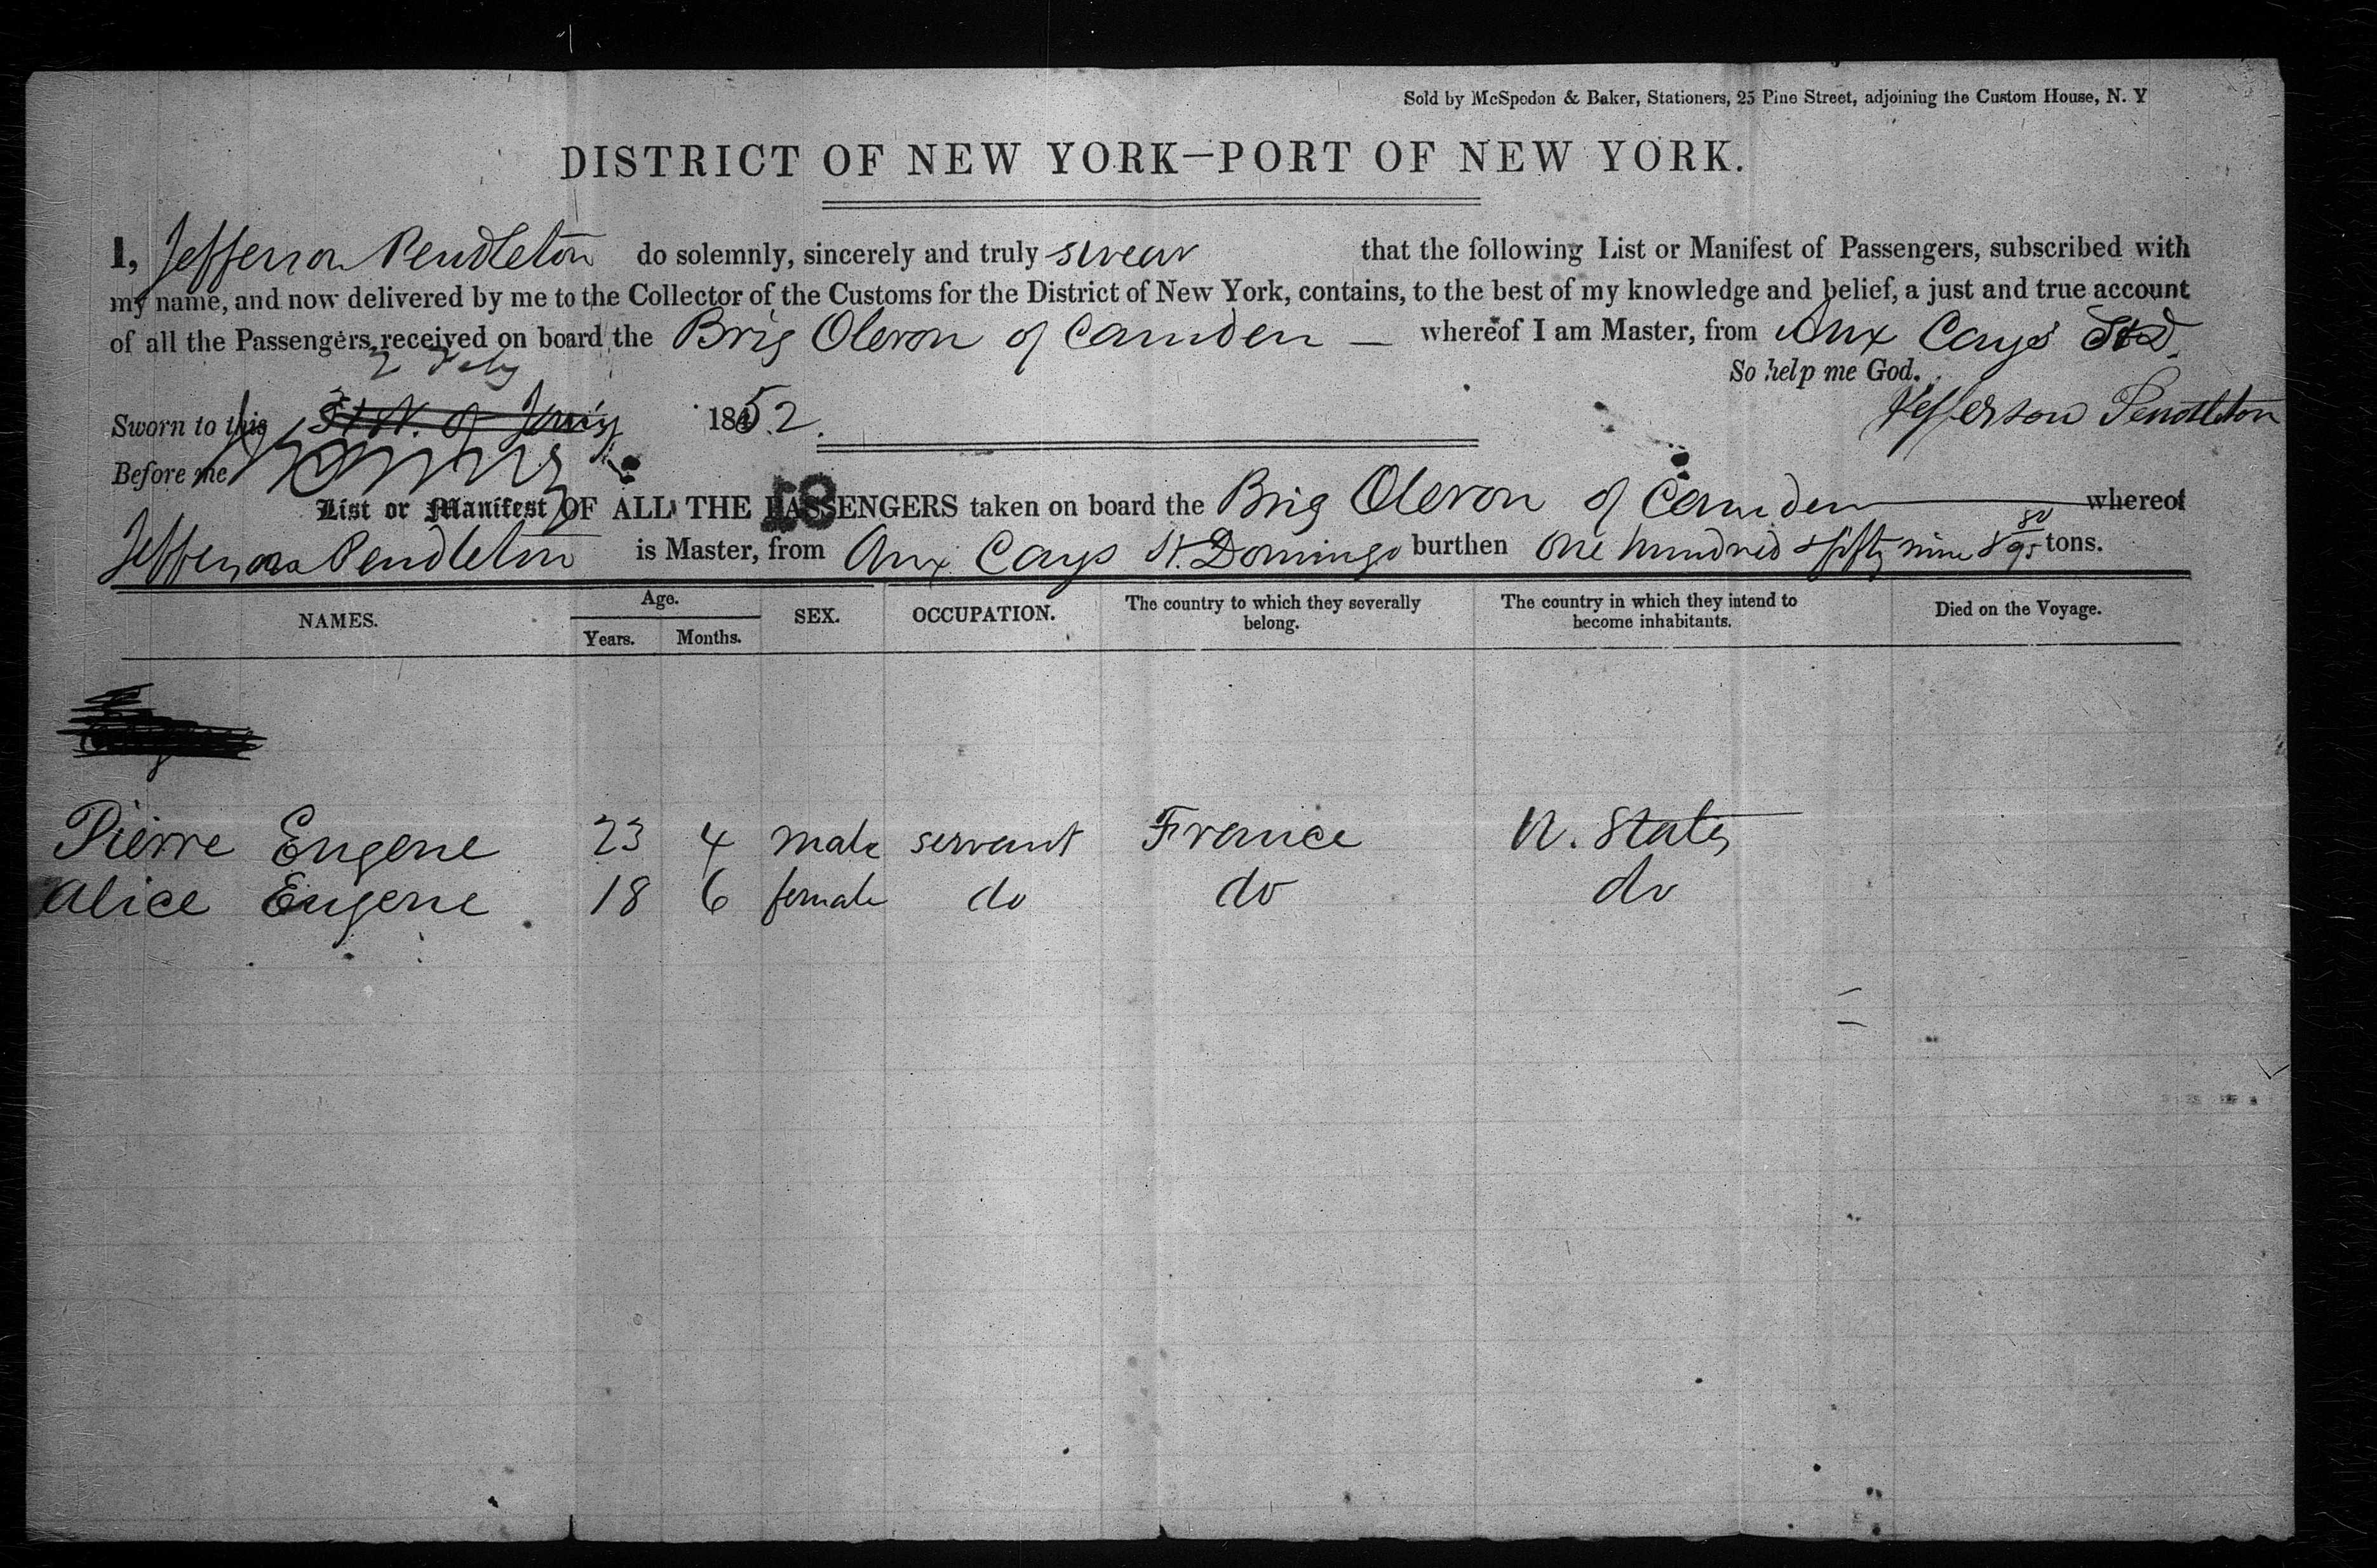 Sold by McSpedon & Baker, Stationers, 25 Pine Street, adjoining the Custom House, N. Y
DISTRICT OF NEW YORK—PORT OF NEW YORK.
I, Jefferson Pendleton do solemnly, sincerely and truly swear that the following List or Manifest of Passengers, subscribed with
my name, and now delivered by me to the Collector of the Customs for the District of New York, contains, to the best of my knowledge and belief, a just and true account
of all the Passengers received on board the Brig Oleron of Camden — whereof I am Master, from Aux Cays St D.
So help me God.
2 Feby
Sworn to this 1852.
Jefferson Pendleton
Before me
List or Manifest OF ALL THE PASSENGERS taken on board the Brig Oleron of Camden whereof
81
Jefferson Pendleton is Master, from Aux Cays St. Domingo burthen One hundred & fifty nine & 80/95 tons.
NAMES. Age. SEX. OCCUPATION. The country to which they severally belong. The country in which they intend to become inhabitants. Died on the Voyage.
Years. Months.
Pierre Eugene 23 4 male servant France U. States
Alice Eugene 18 6 female do do do